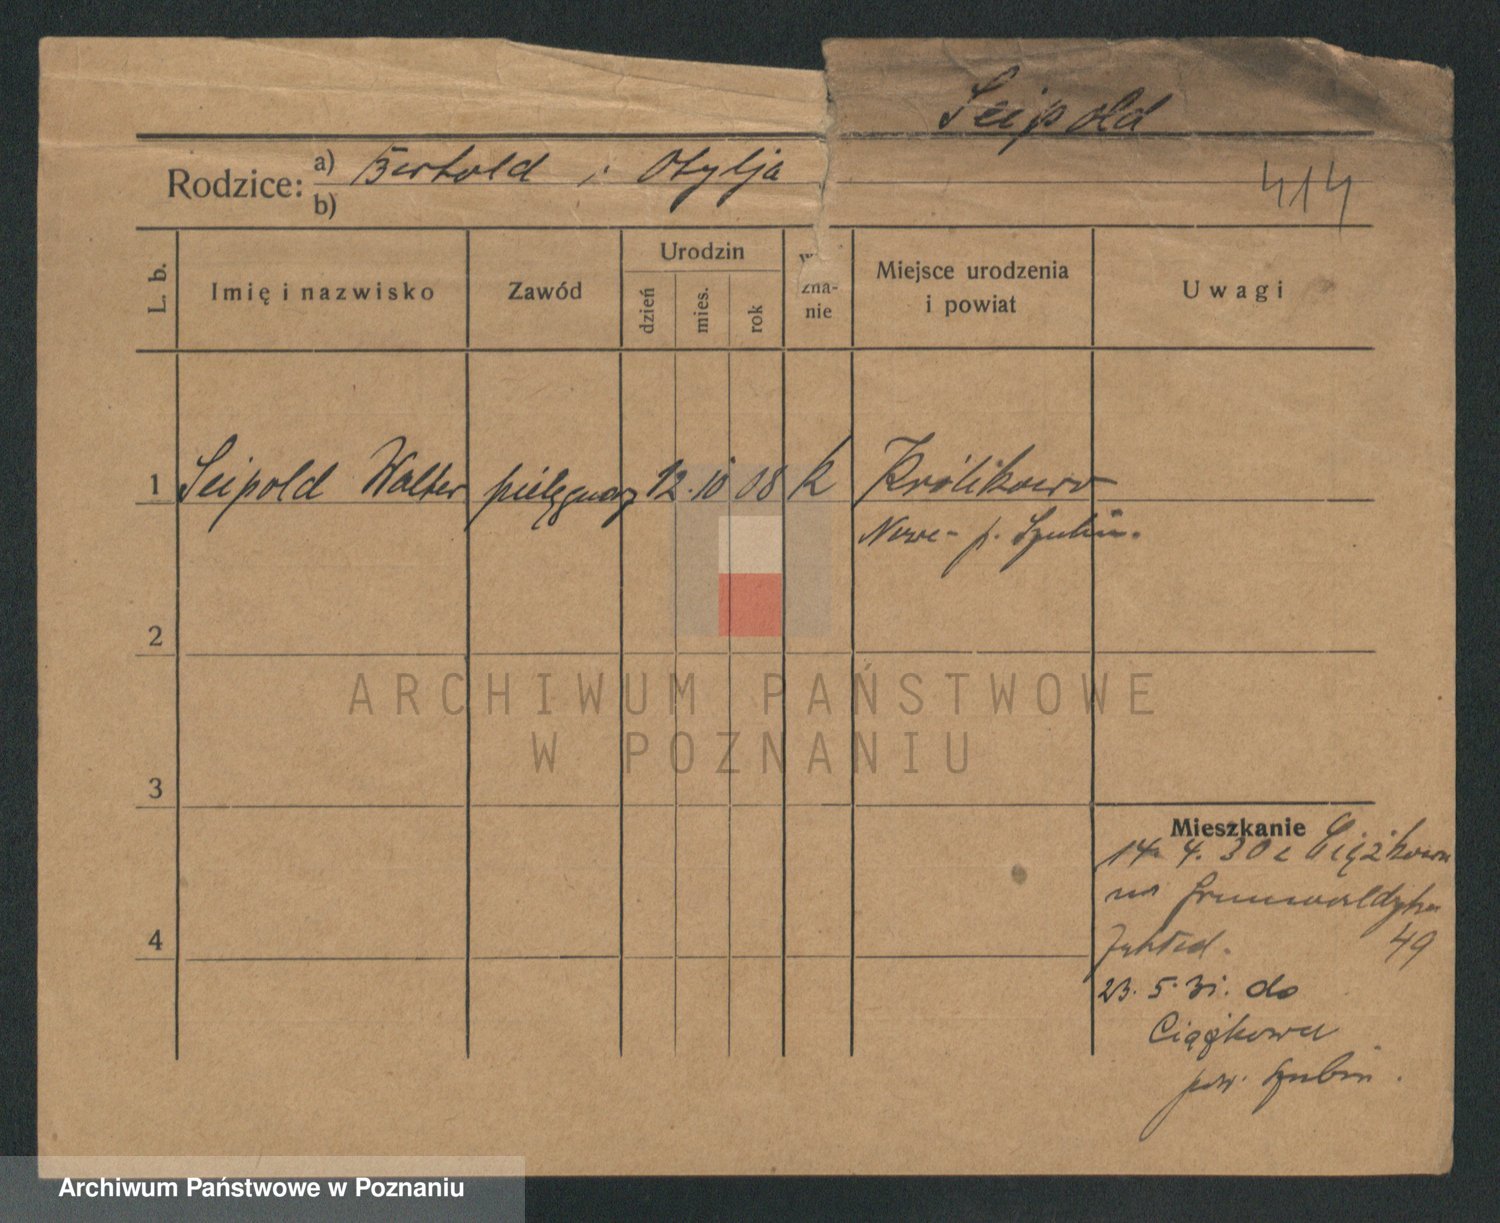 Seipold
Rodzice: a) Bertold i Otylja
b)
414
L. b. Imię i nazwisko Zawód Urodzin dzień mies. rok zna-nie Miejsce urodzenia i powiat Uwagi
1 Seipold Walter pielęgniarz 12. 10 08 k Królikowo
Nowe- p. Szubin.
2
3
4
Mieszkanie
14. 4. 30 z Ciążkowa
na Grunwaldzka
49
23. 5. 31. do
Ciążkowa
pow. Szubin.
ARCHIWUM PAŃSTWOWE
W POZNANIU
Archiwum Państwowe w Poznaniu